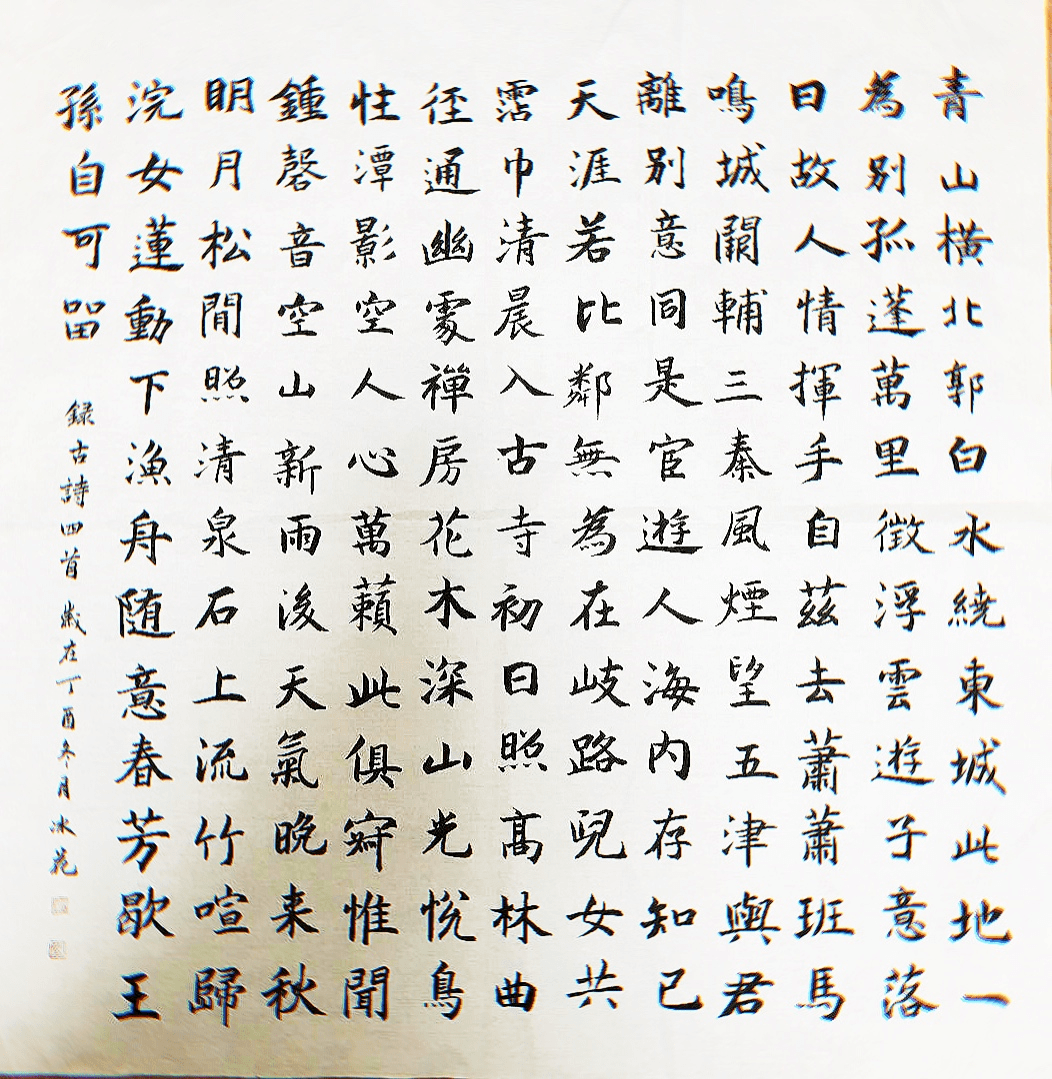 青山橫北郭白水繞東城此地一
為別孤蓬萬里徵浮雲遊子意落
日故人情揮手自茲去蕭蕭班馬
鳴城闕輔三秦風煙望五津與君
離別意同是宦遊人海內存知己
天涯若比鄰無為在岐路兒女共
霑巾清晨入古寺初日照高林曲
徑通幽處禪房花木深山光悅鳥
性潭影空人心萬籟此俱寂惟聞
鍾磬音空山新雨後天氣晚来秋
明月松間照清泉石上流竹喧歸
浣女蓮動下漁舟随意春芳歇王
孫自可留
錄古詩四首 歲在丁酉冬月冰苑